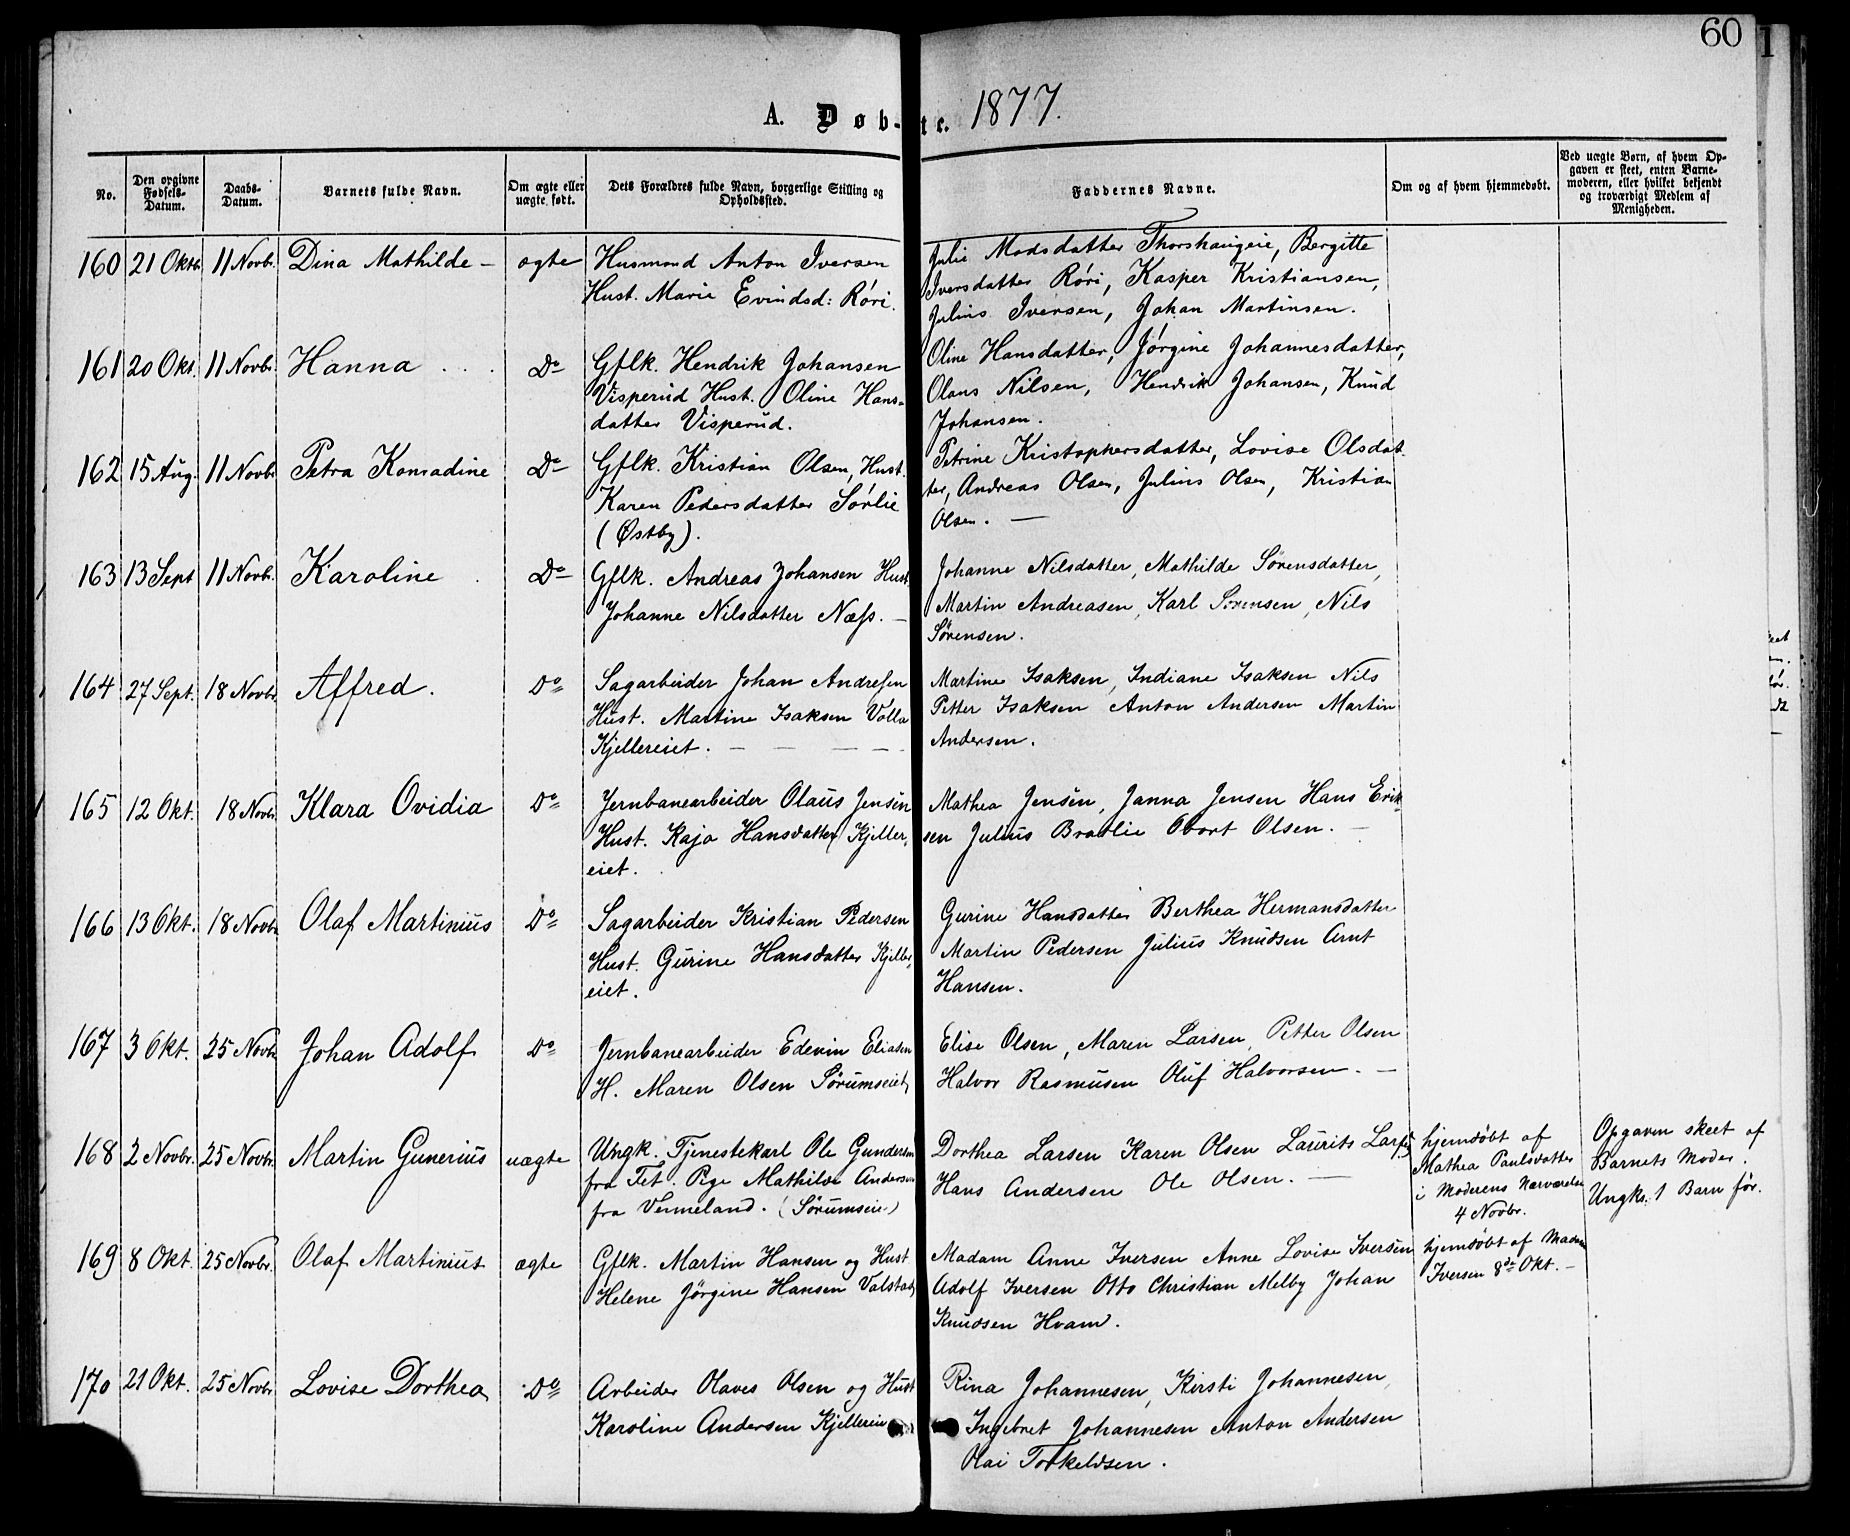 60
A. Døb-te. 1877.
No.
Den opgivne Fødsels-Datum.
Daabs-Datum.
Barnets fulde Navn.
Om ægte eller uægte født.
Dets Forældres fulde Navn, borgerlige Stilling og Opholdssted.
Faddernes Navne.
Om og af hvem hjemmedøbt.
Ved uægte Børn, af hvem Opgaven er skeet, enten Barnemoderen, eller hvilket bekjendt og troværdigt Medlem af Menigheden.
160 21 Oktb 11 Novbr. Dina Mathilde – ægte
Husmand Anton Iversen
Hust. Marie Evindsd: Röri.
Julie Madsdatter Thorshaugeie, Bergitte
Iversdatter Röri, Kasper Kristiansen,
Julius Iversen, Johan Martinsen.
161 20 Okt. 11 Novbr. Hanna . . . Do
Gflk. Hendrik Johansen
Visperud Hust. Oline Hans-
datter Visperud.
Oline Hansdatter, Jörgine Johannesdatter,
Olaus Nilsen, Hendrik Johansen, Knud
Johansen.
162 15 Aug. 11 Novbr Petra Konradine Do
Gflk. Kristian Olsen, Hust.
Karen Pedersdatter Sörlie
(Østby).
Petrine Kristophersdatter, Lovise Olsdat
ter, Andreas Olsen, Julius Olsen, Kristian
Olsen. —
163 13 Sept 11 Novbr. Karoline . Do
Gflk. Andreas Johansen Hust
Johanne Nilsdatter Næss. –
Johanne Nilsdatter, Mathilde Sörensdatter,
Martin Andreasen, Karl Sörensen, Nils
Sörensen.
164 27 Sept. 18 Novbr Alfred. Do
Sagarbeider Johan Andresen
Hust. Martine Isaksen Volla
Kjellereiet. — — — —
Martine Isaksen, Indiane Isaksen Nils
Petter Isaksen Anton Andersen Martin
Andersen.
165 12 Okt. 18 Novbr Klara Ovidia Do
Jernbanearbeider Olaus Jensen
Hust. Kaja Hansdatter Kjeller-
eiet.
Mathea Jensen, Janna Jensen Hans Erik-
sen Julius Braslie Obort Olsen. —
166 13 Okt. 18 Novbr Olaf Martinius Do
Sagarbeider Kristian Pedersen
Hust. Gurine Hansdatter Kjeller-
eiet.
Gurine Hansdatter Berthea Hermansdatter
Martin Pedersen Julius Knudsen Arnt
Hansen.
167 3 Okt. 25 Novbr Johan Adolf Do
Jernbanearbeider Edevin Eliasen
H. Maren Olsen Sörumseiet
Elise Olsen, Maren Larsen, Petter Olsen
Halvor Rasmusen Oluf Halvorsen. –
168 2 Novbr. 25 Novbr. Martin Gunerius uægte
Ungk. Tjenestekarl Ole Gundersen
fra Fet. Pige Mathilde Andersen
fra Vermeland. (Sörumseie)
Dorthea Larsen Karen Olsen Laurits Larsen
Hans Andersen Ole Olsen. —
hjemdöbt af
Mathea Paulsdatter
i Moderens Nærværelse
4 Novbr.
Opgaven skeet af
Barnets Moder.
Ungk. 1 Barn før.
169 8 Okt. 25 Novbr. Olaf Martinius ægte
Gflk. Martin Hansen og Hust
Helene Jörgine Hansen Valstad
Madam Anne Iversen Anne Lovise Iversen
Adolf Iversen Otto Christian Melby Johan
Knudsen Hvam.
hjemdöbt af Madam
Iversen 8de Okt. –
170 21 Okt. 25 Novbr. Lovise Dorthea Do
Arbeider Olaves Olsen og Hust
Karoline Andersen Kjellereie
Rina Johannesen, Kirsti Johannesen,
Ingebret Johannesen Anton Andersen
Olai Torkeldsen.